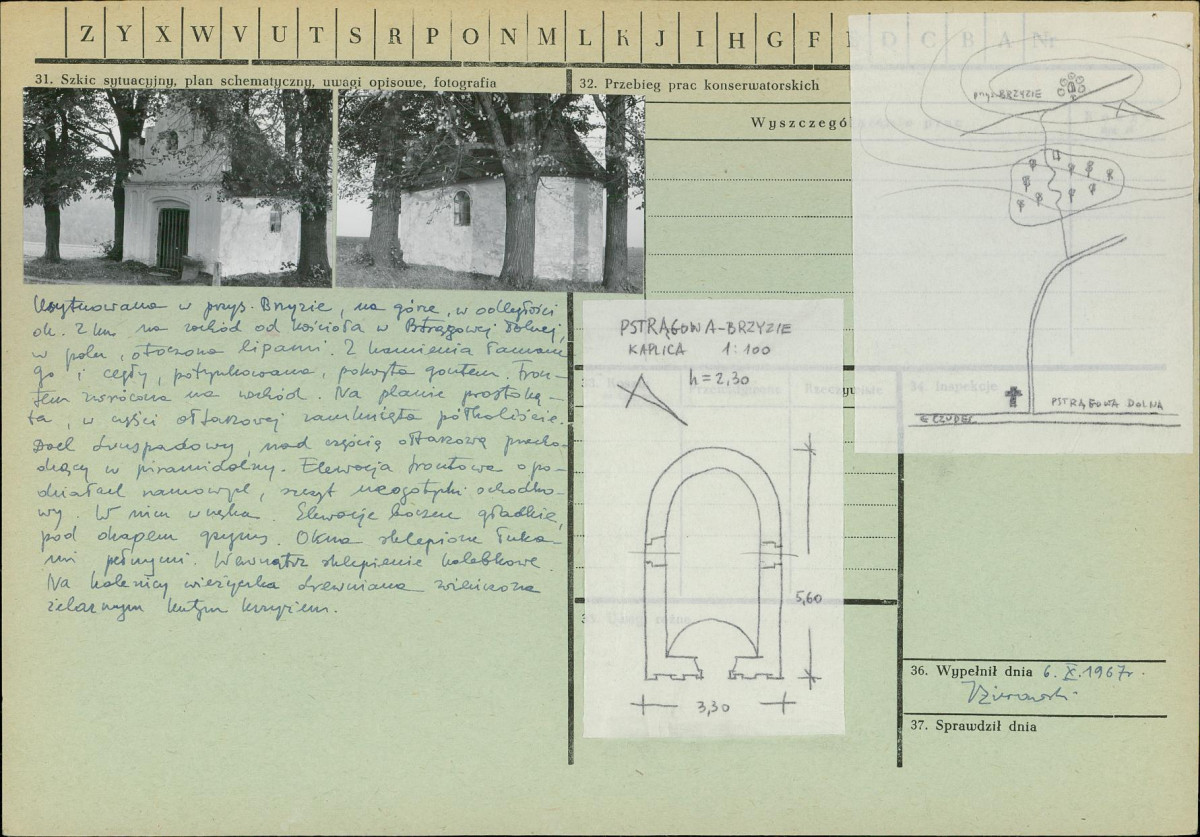 Z Y X W V U T S R P O N M L K J I H G F E D C B A Nr
31. Szkic sytuacyjny, plan schematyczny, uwagi opisowe, fotografia
32. Przebieg prac konserwatorskich
Wyszczegó
Usytuowana w przys. Brzyzie, na górze, w odległości
ok. 2 km na zachód od kościoła w Pstrągowej Dolnej,
w polu, otoczona lipami. Z kamienia łamane-
go i cegły, potynkowana, pokryta gontem. Fron-
tem zwrócona na wschód. Na planie prostoką-
ta, w części ołtarzowej zamknięta półkoliście.
Dach dwuspadowy, nad częścią ołtarzową przecho-
dzący w piramidalny. Elewacja frontowa o po-
działach ramowych, szczyt neogotycki schodko-
wy. W nim wnęka. Elewacje boczne gładkie,
pod okapem gzyms. Okna sklepione łuka-
mi pełnymi. Wewnątrz sklepienie kolebkowe.
Na kalenicy wieżyczka drewniana zwieńczona
żelaznym kutym krzyżem.
PSTRĄGOWA-BRZYZIE
KAPLICA 1:100
h = 2,30
5,60
3,30
przys. BRZYZIE
PSTRĄGOWA DOLNA
← CZUDEC
34. Inspekcje
36. Wypełnił dnia 6.X.1967r.
37. Sprawdził dnia